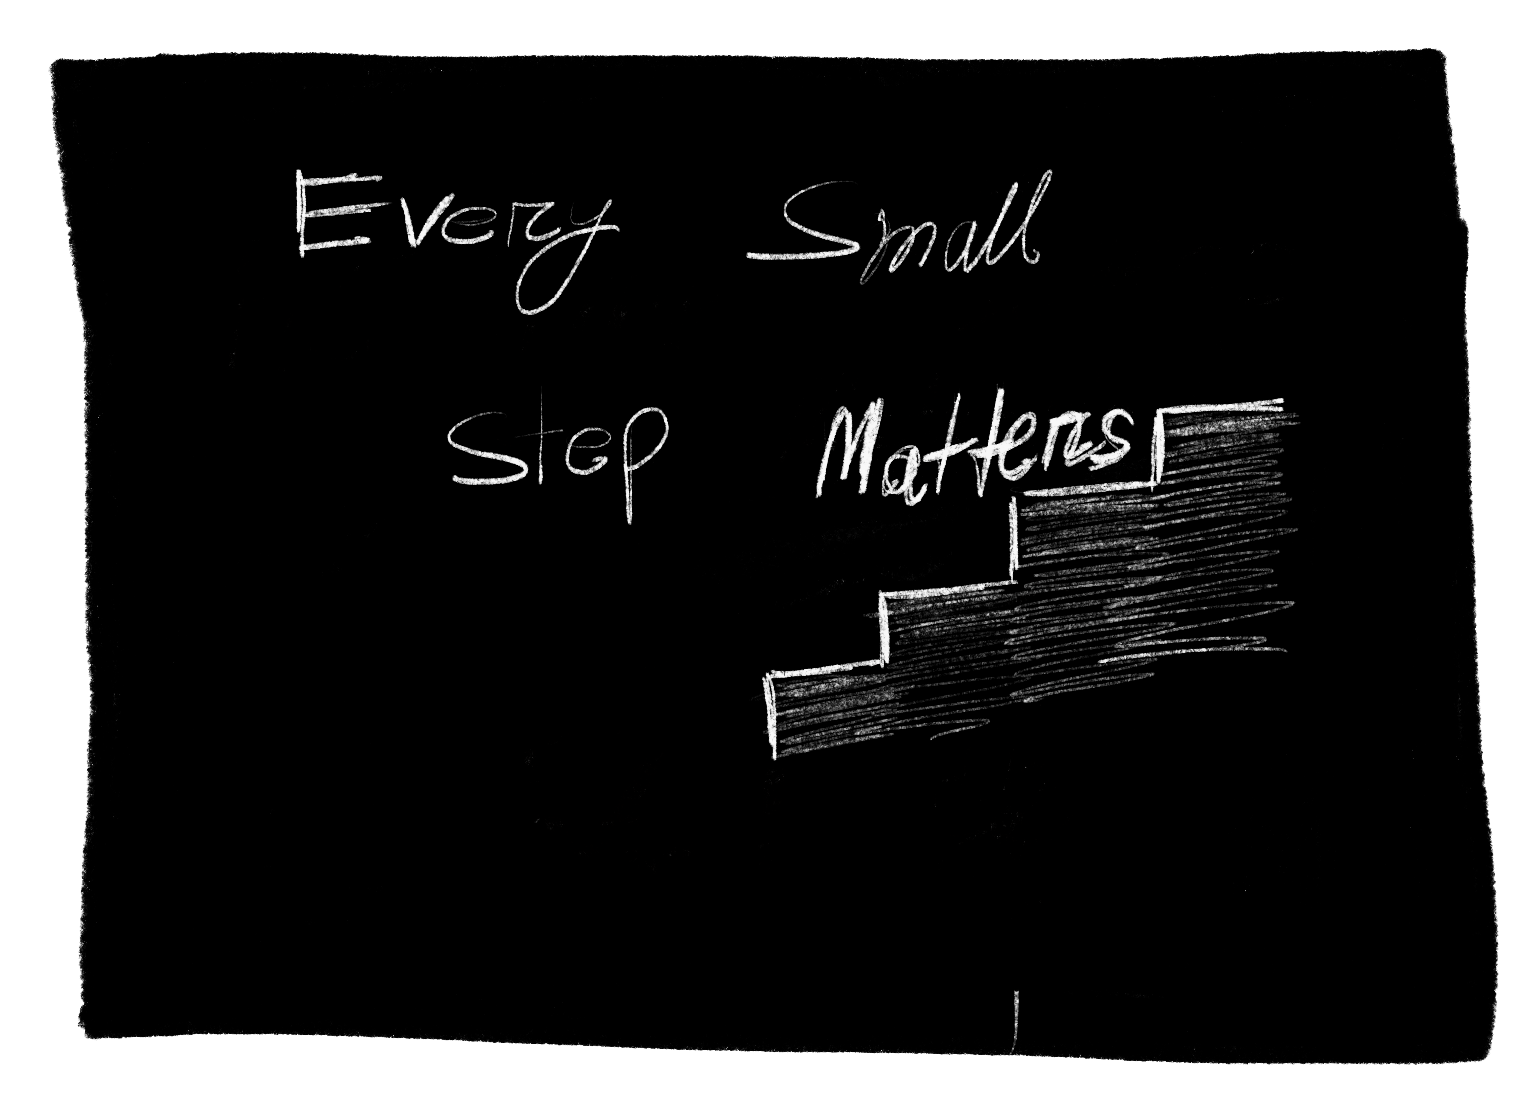 Every Small
Step Matters